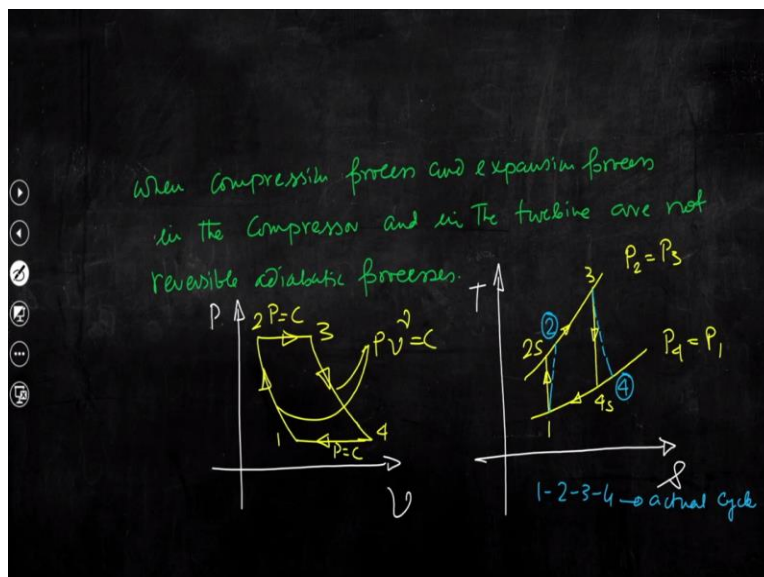 When compression process and expansion process
in the compressor and in the turbine are not
reversible adiabatic processes.
P
2 P=C 3
Pν^γ=C
1 P=C 4
ν
T
3 P₂=P₃
2s ②
P₄=P₁
1 4s ④
s
1-2-3-4 → actual cycle